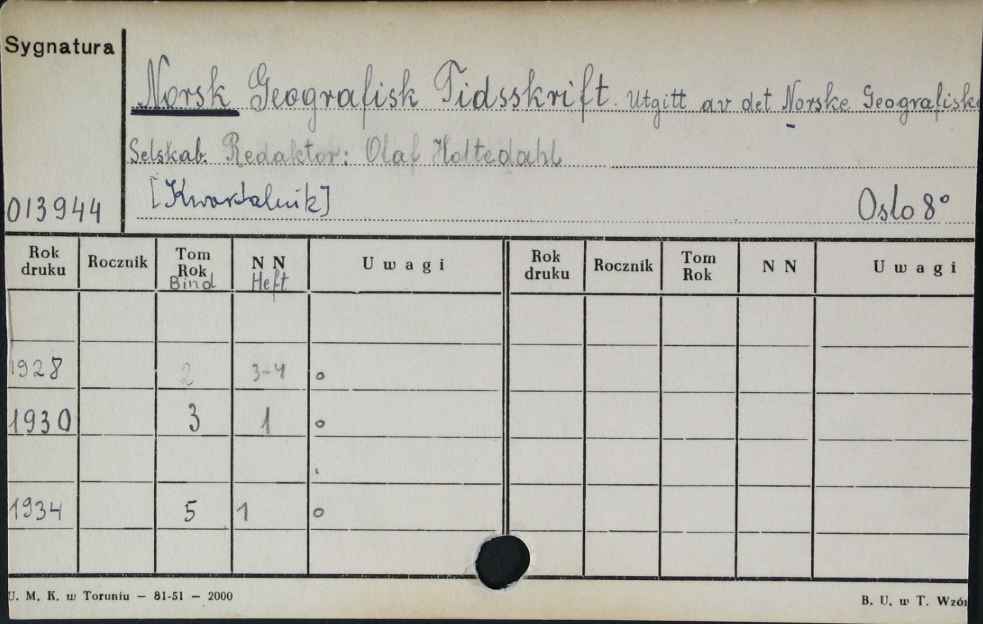 Sygnatura
Norsk Geografisk Tidsskrift. Utgitt av det Norske Geografiske
Selskab. Redaktor: Olaf Holtedahl
[Kwartalnik]
013944 Oslo 8°
Rok druku Rocznik Tom Rok Bind N N Heft Uwagi Rok druku Rocznik Tom Rok N N Uwagi
1928 2 3-4 o
1930 3 1 o
1934 5 1 o
U. M. K. w Toruniu — 81-51 — 2000 B. U. w T. Wzór